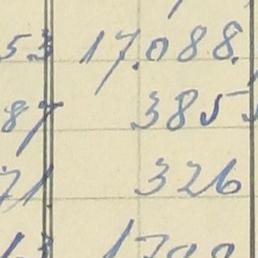 53 17.088.
87 385
71 326